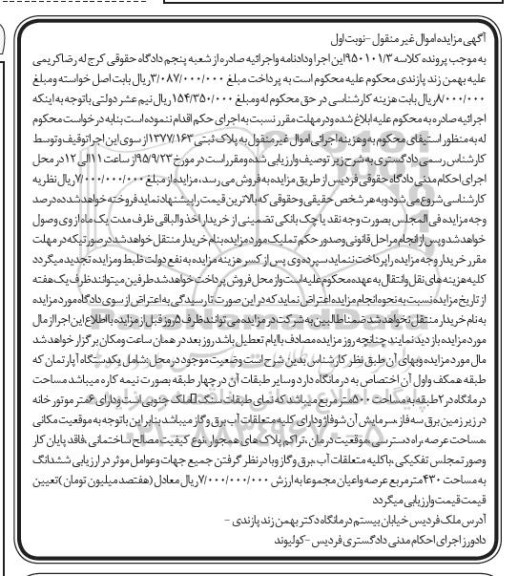 آگهی مزایده اموال غیر منقول – نوبت اول
به موجب پرونده کلاسه ۹۵۰۱۰۱/۳ این اجرا و دادنامه و اجرائیه صادره از شعبه پنجم دادگاه حقوقی کرج له رضا کریمی
علیه بهمن زند پازندی محکوم علیه محکوم است به پرداخت مبلغ ۳/۰۸۷/۰۰۰/۰۰۰ ریال بابت اصل خواسته و مبلغ
۸/۰۰۰/۰۰۰ ریال بابت هزینه کارشناسی در حق محکوم له و مبلغ ۱۵۴/۳۵۰/۰۰۰ ریال نیم عشر دولتی باتوجه به اینکه
اجرائیه صادره به محکوم علیه ابلاغ شده و در مهلت مقرر نسبت به اجرای حکم اقدام ننموده است بنا به درخواست محکوم
له به منظور استیفای محکوم به و هزینه اجرائی اموال غیر منقول به پلاک ثبتی ۱۳۷۷/۱۶۳ از سوی این اجرا توقیف و توسط
کارشناس رسمی دادگستری به شرح زیر توصیف و ارزیابی شده و مقرر است در مورخ ۹۵/۹/۲۳ از ساعت ۱۱ الی ۱۲ در محل
اجرای احکام مدنی دادگاه حقوقی فردیس از طریق مزایده به فروش می رسد، مزایده از مبلغ ۷/۰۰۰/۰۰۰/۰۰۰ ریال نظریه
کارشناسی شروع می شود و به هر شخص حقیقی و حقوقی که بالاترین قیمت را پیشنهاد نماید فروخته خواهد شد ده درصد
وجه مزایده فی المجلس بصورت وجه نقد یا چک بانکی تضمینی از خریدار اخذ و الباقی ظرف مدت یک ماه از وی وصول
خواهد شد و پس از انجام مراحل قانونی و صدور حکم تملیک مورد مزایده بنام خریدار منتقل خواهد شد در صورتیکه در مهلت
مقرر خریدار وجه مزایده را پرداخت ننماید سپرده وی پس از کسر هزینه مزایده به نفع دولت ظبط و مزایده تجدید میگردد
کلیه هزینه های نقل و انتقال به عهده محکوم علیه است و از محل فروش پرداخت خواهد شد طرفین میتوانند ظرف یک هفته
از تاریخ مزایده نسبت به نحوه انجام مزایده اعتراض نماید که در این صورت تا رسیدگی به اعتراض از سوی دادگاه مورد مزایده
به نام خریدار منتقل نخواهد شد ضمنا طالبین به شرکت در مزایده می توانند ظرف ۵ روز قبل از مزایده با اطلاع این اجرا از مال
مورد مزایده بازدید نمایند چنانچه روز مزایده مصادف با ایام تعطیل باشد روز بعد در همان ساعت و مکان برگزار خواهد شد
مال مورد مزایده و بهای آن طبق نظر کارشناس بدین شرح است وضعیت موجود در محل: شامل یکدستگاه آپارتمان که
طبقه همکف و اول آن اختصاص به درمانگاه دارد و سایر طبقات آن در چهار طبقه بصورت نیمه کاره میباشد مساحت
درمانگاه در ۲ طبقه به مساحت ۵۰۰ متر مربع میباشد که نمای طبقات سنگ، املاک جنوبی است و دارای ۶ متر موتور خانه
در زیر زمین برق سه فاز سرمایش آن شوفاژ و دارای کلیه متعلقات آب برق و گاز میباشد بنابر این باتوجه به موقعیت مکانی
،مساحت عرصه راه دسترسی، موقعیت درمان ،تراکم پلاک های همجوار ،نوع کیفیت مصالح ساختمانی ،فاقد پایان کار
وصورتمجلس تفکیکی ،باکلیه متعلقات آب ،برق و گاز و با در نظر گرفتن جمیع جهات و عوامل موثر در ارزیابی ششدانگ
به مساحت ۴۳۰ متر مربع عرصه و اعیان مجموعا به ارزش ۷/۰۰۰/۰۰۰/۰۰۰ ریال معادل (هفتصد میلیون تومان) تعیین
قیمت قیمت و ارزیابی میگردد
آدرس ملک فردیس خیابان بیستم درمانگاه دکتر بهمن زند پازندی –
دادورز اجرای احکام مدنی دادگستری فردیس – کولیوند